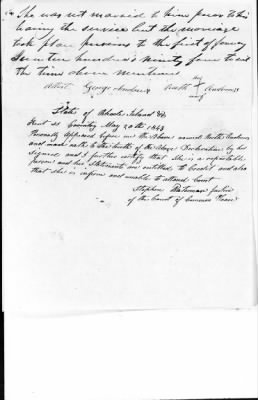 She was not married to him prior to his
leaving the service but the marriage
took place previous to the first of January
Seventeen hundred & ninety four to wit
the time above mentioned
her
Attest George Andrews Ruth X Andrews
mark
State of Rhode Island &c
Kent ss Coventry May 20th 1843
Personally appeared before me the above named Ruth Andrews
and made oath to the truth of the above Declaration by her
signed and I further certify that she is a reputable
person and her statements are entitled to Credit and also
that she is infirm and unable to attend Court
Stephen Bateman Justice
of the Court of Common Pleas